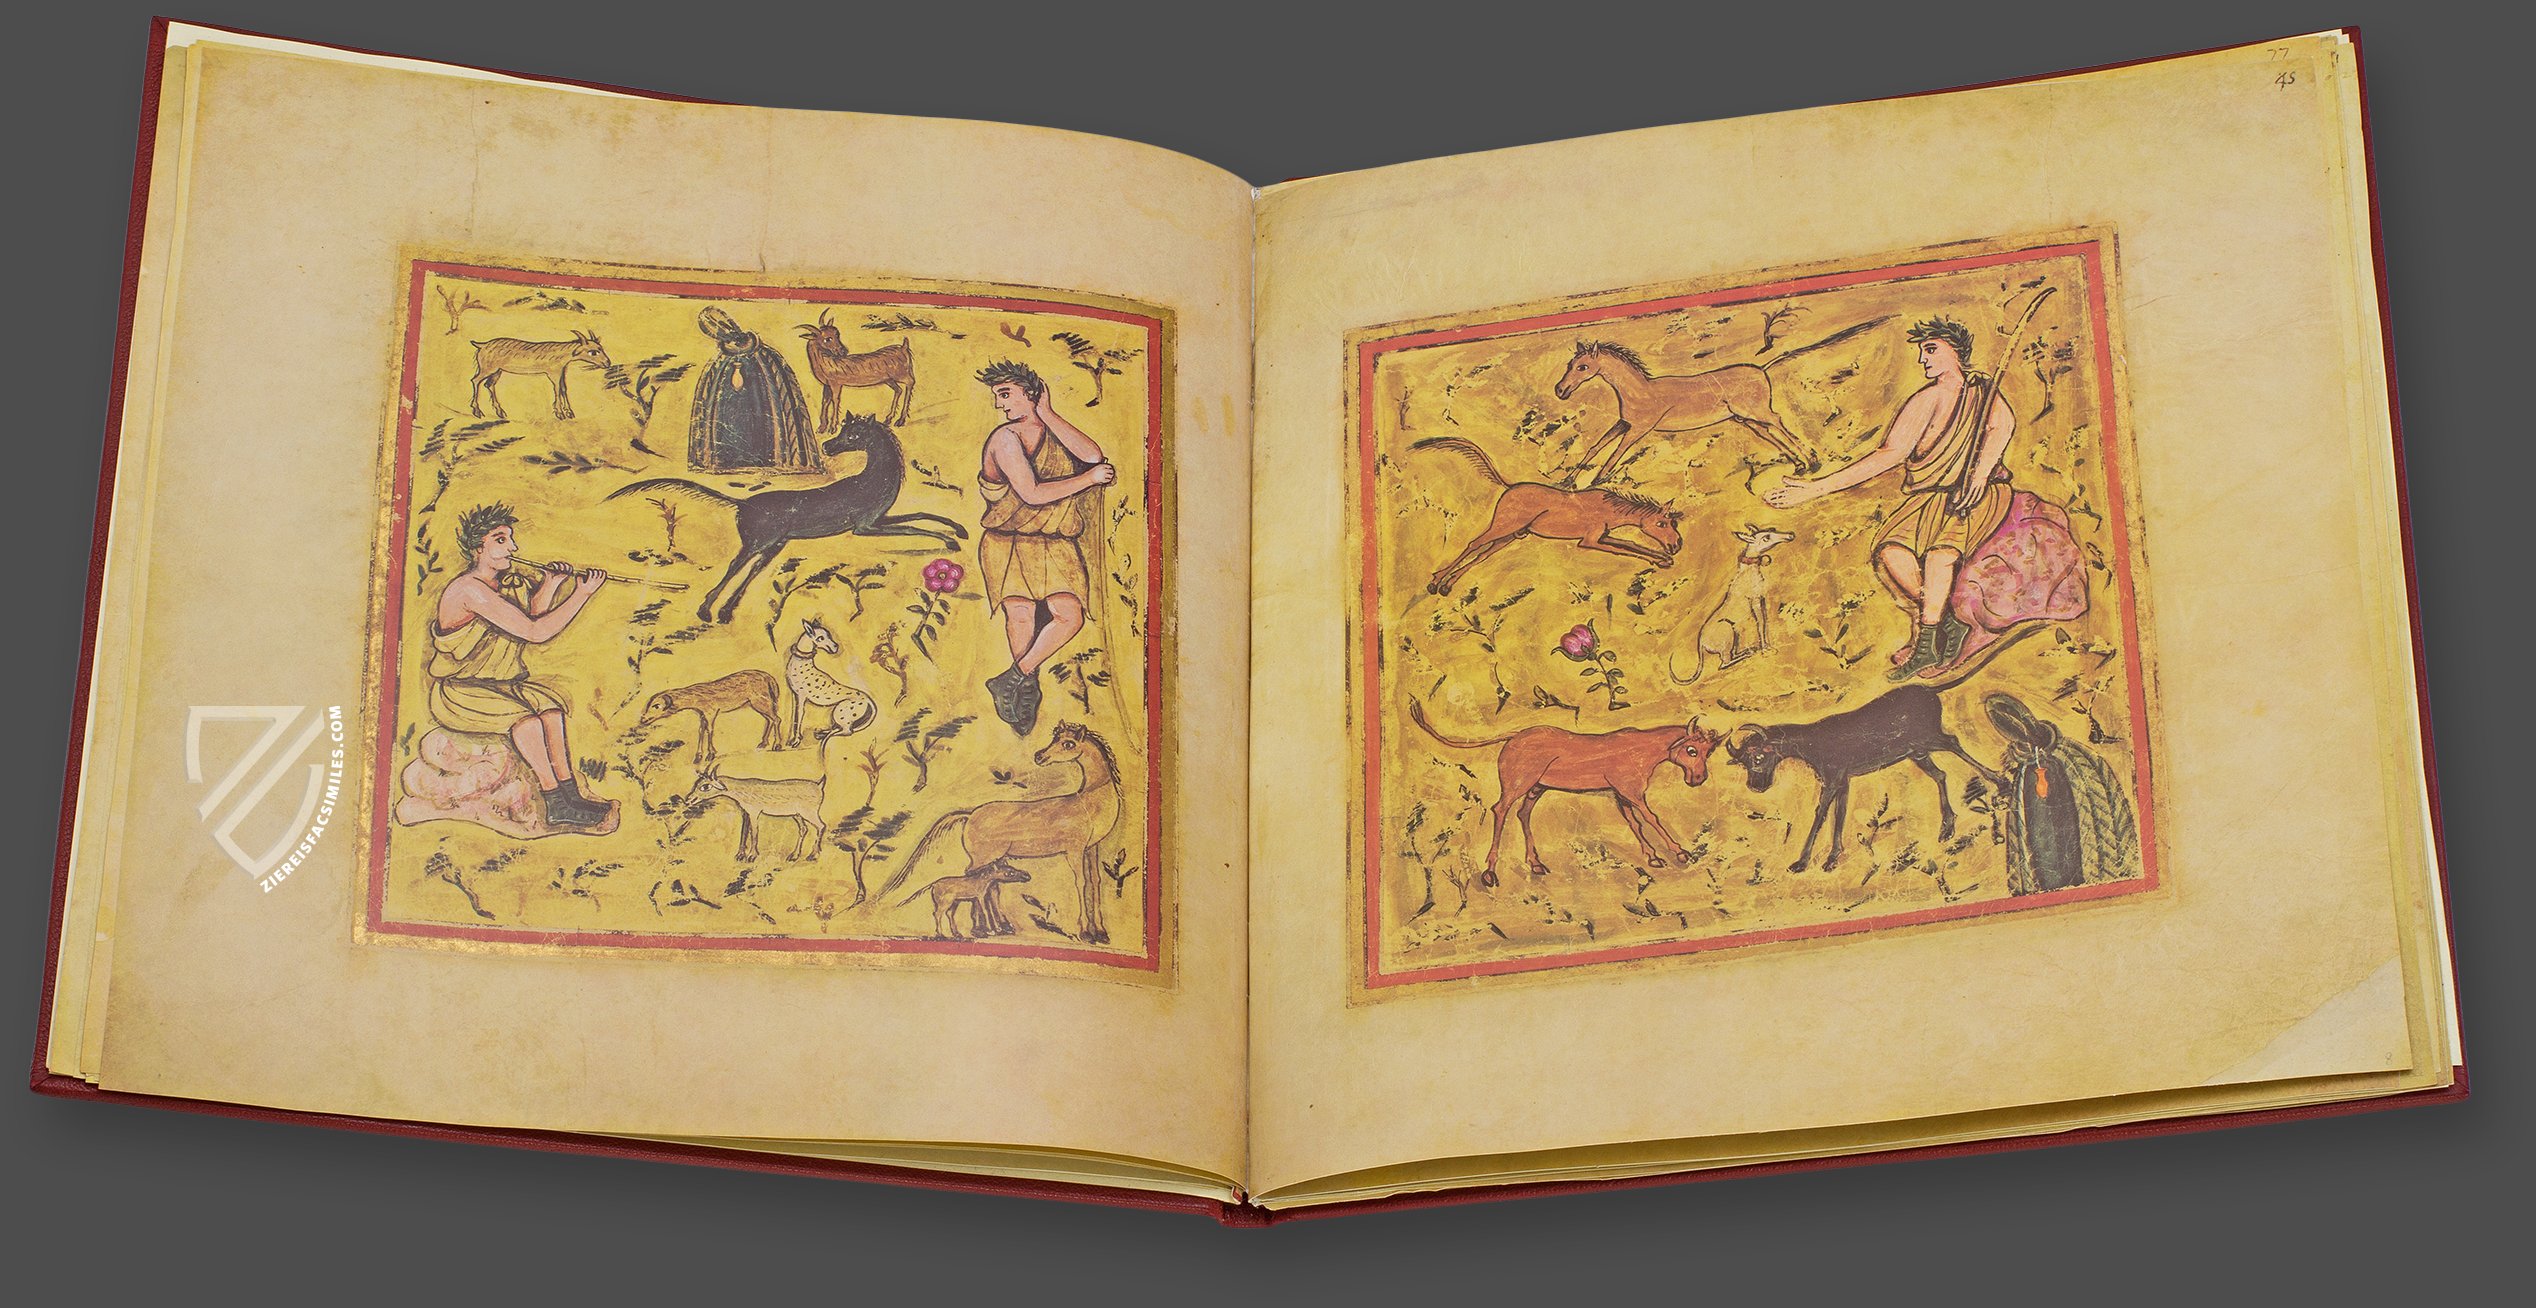 77
45
ZIEREISFACSIMILES.COM